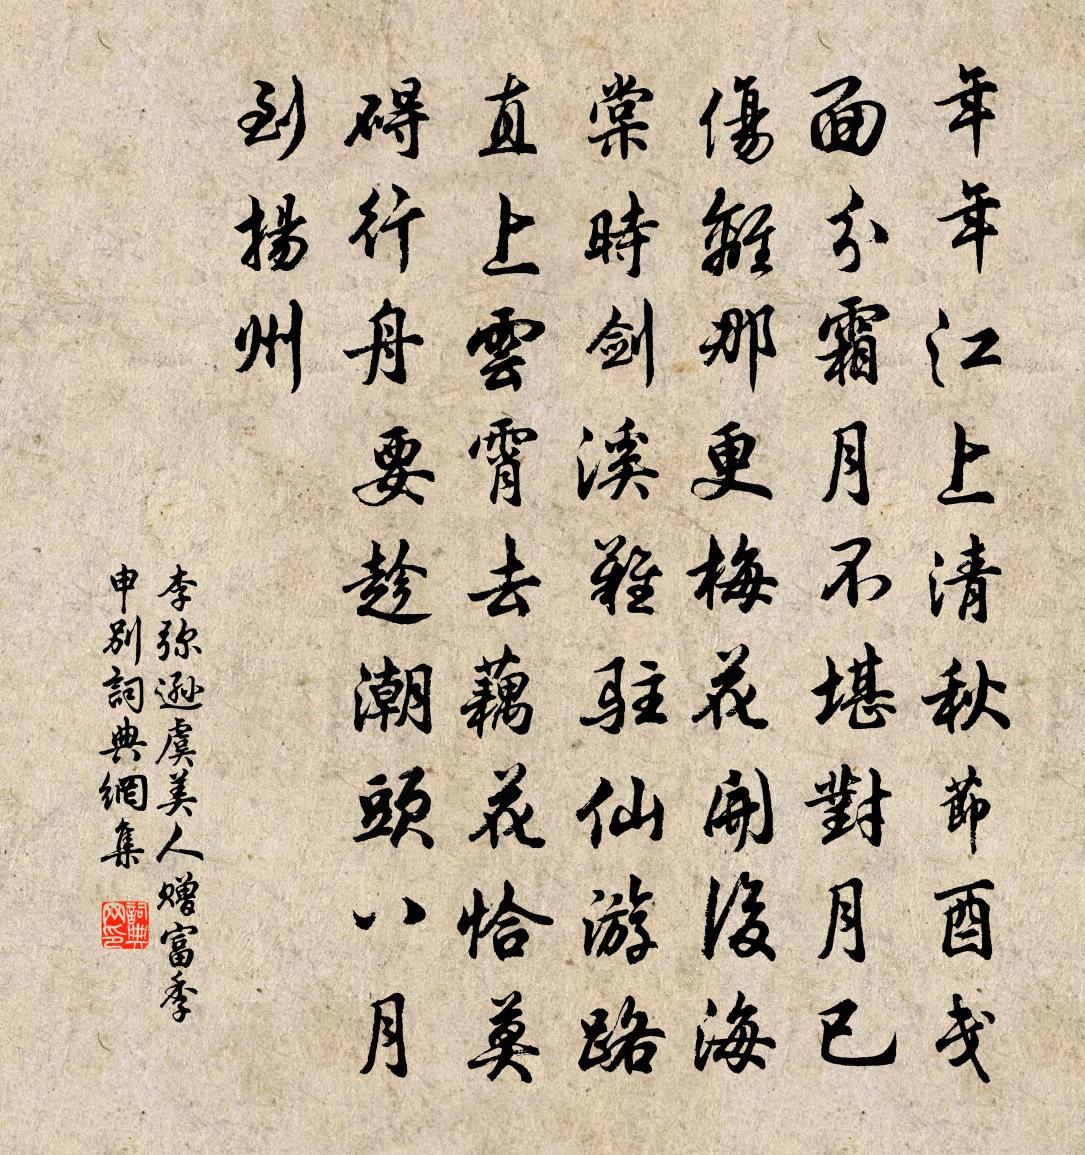 年年江上清秋節酉戋
面分霜月不堪對月已
傷離那更梅花開後海
棠時劍溪難駐仙游路
直上雲霄去藕花恰莫
碍行舟要趁潮頭八月
到揚州
李弥遜虞美人贈富季
申別詞典網集
詞典
网印